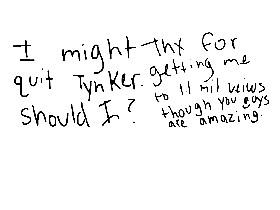 I might
quit Tynker.
should I?
Thx for
getting me
to 11 mil veiws
though you guys
are amazing.